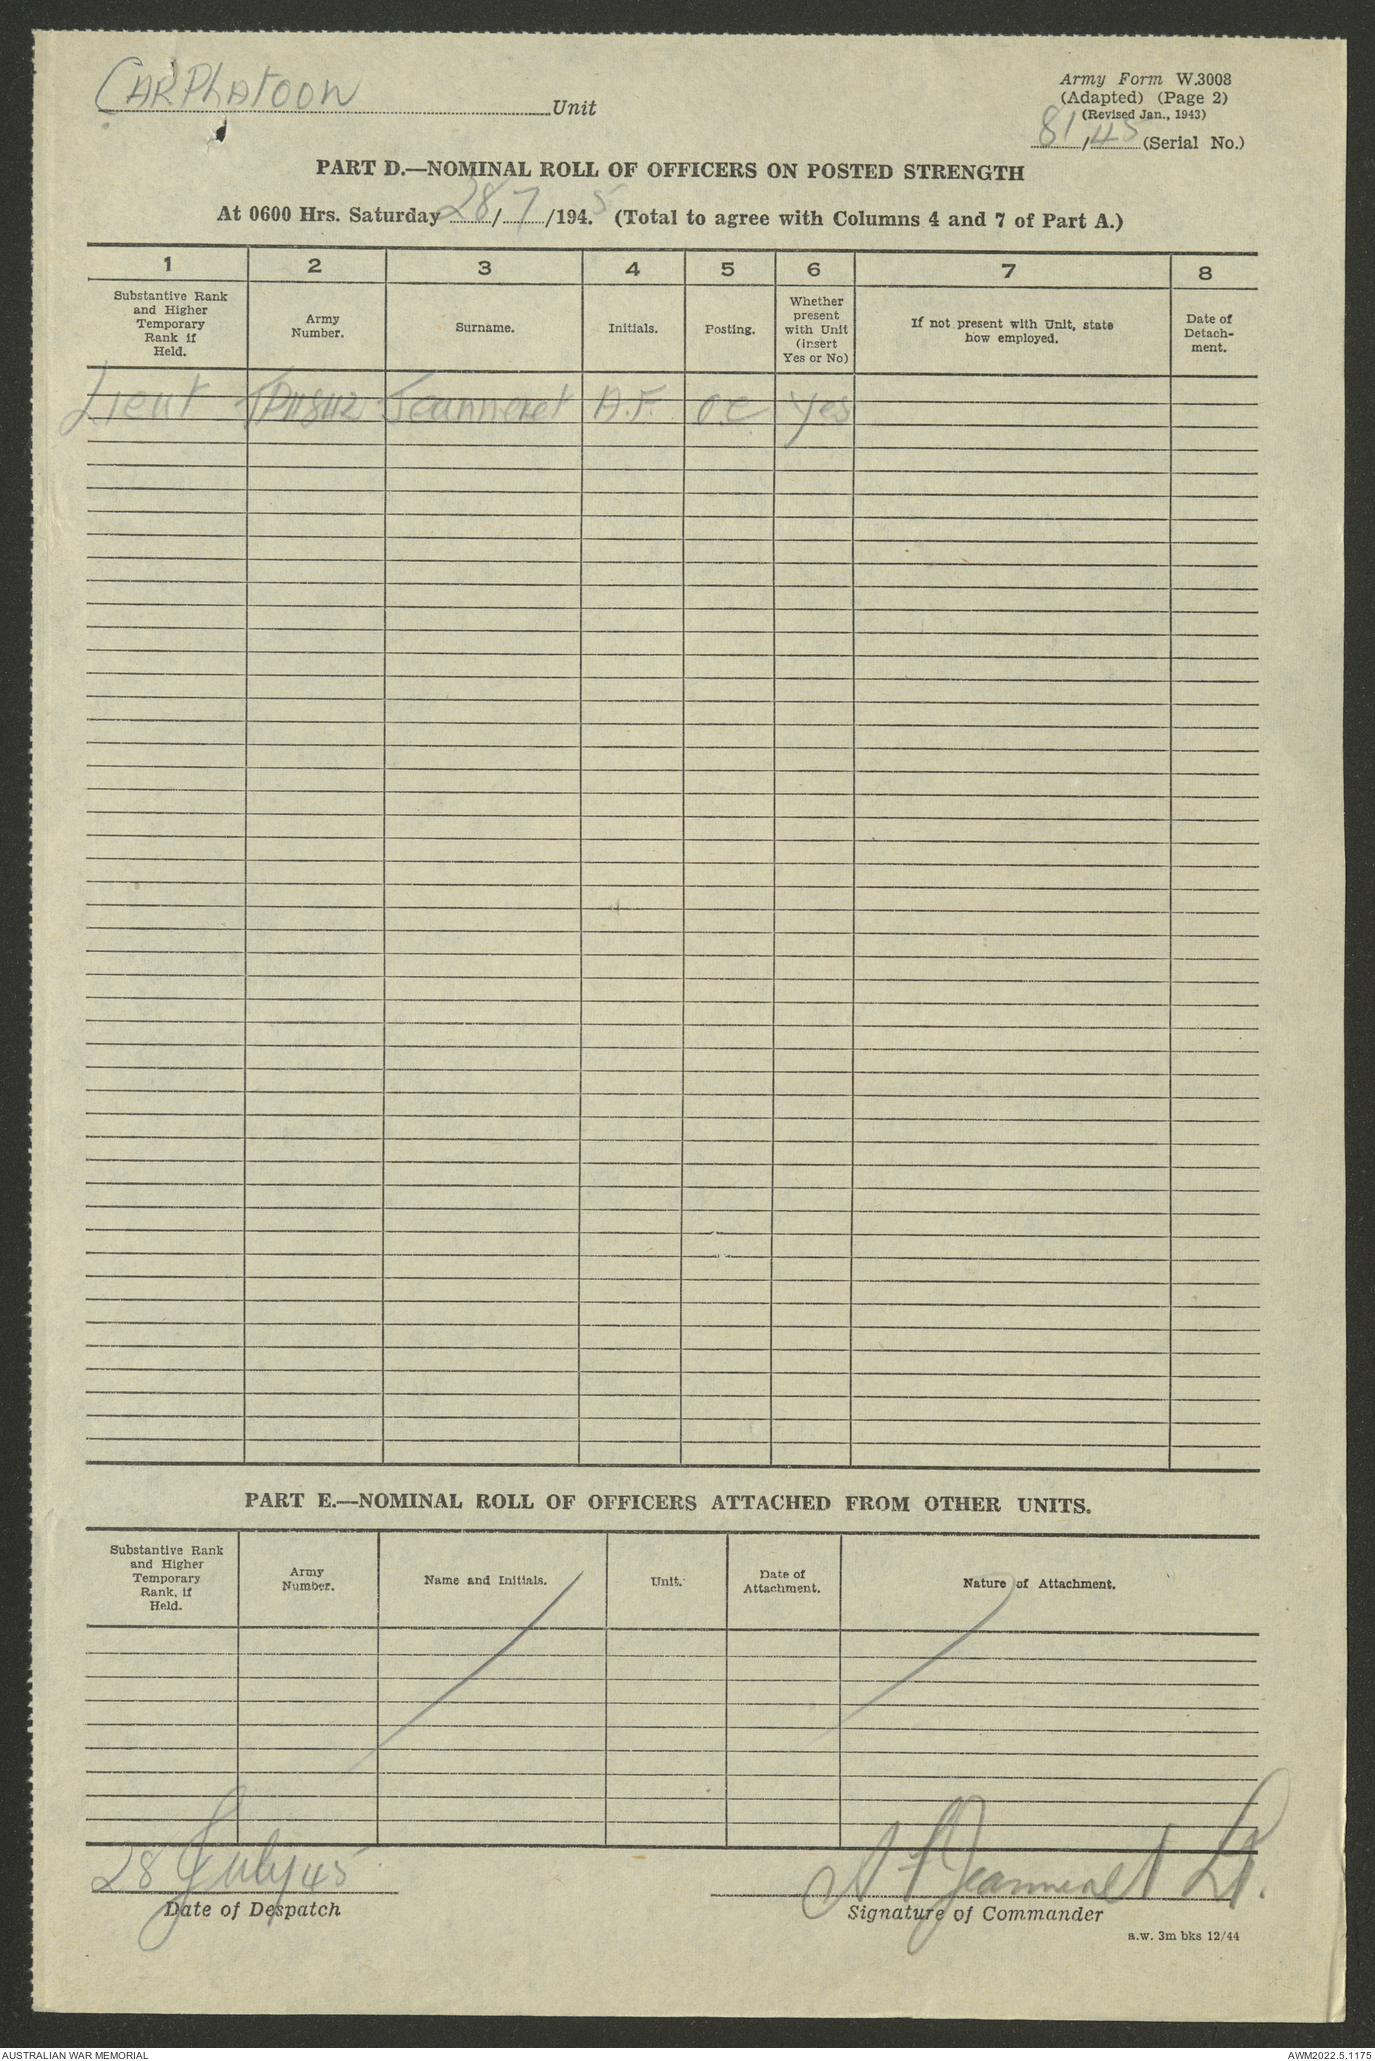 CAR Platoon Unit
Army Form W.3008
(Adapted) (Page 2)
(Revised Jan., 1943)
81/45 (Serial No.)
PART D.—NOMINAL ROLL OF OFFICERS ON POSTED STRENGTH
At 0600 Hrs. Saturday 28/7/1945 (Total to agree with Columns 4 and 7 of Part A.)
1 2 3 4 5 6 7 8
Substantive Rank and Higher Temporary Rank if Held.
Army Number.
Surname.
Initials.
Posting.
Whether present with Unit (insert Yes or No)
If not present with Unit, state how employed.
Date of Detach-ment.
Lieut Jeanneret A.F. O.C Yes
PART E.—NOMINAL ROLL OF OFFICERS ATTACHED FROM OTHER UNITS.
Substantive Rank and Higher Temporary Rank, if Held.
Army Number.
Name and Initials.
Unit.
Date of Attachment.
Nature of Attachment.
28 July 45
A F Jeanneret Lt.
Date of Despatch
Signature of Commander
a.w. 3m bks 12/44
AUSTRALIAN WAR MEMORIAL
AWM2022.5.1175